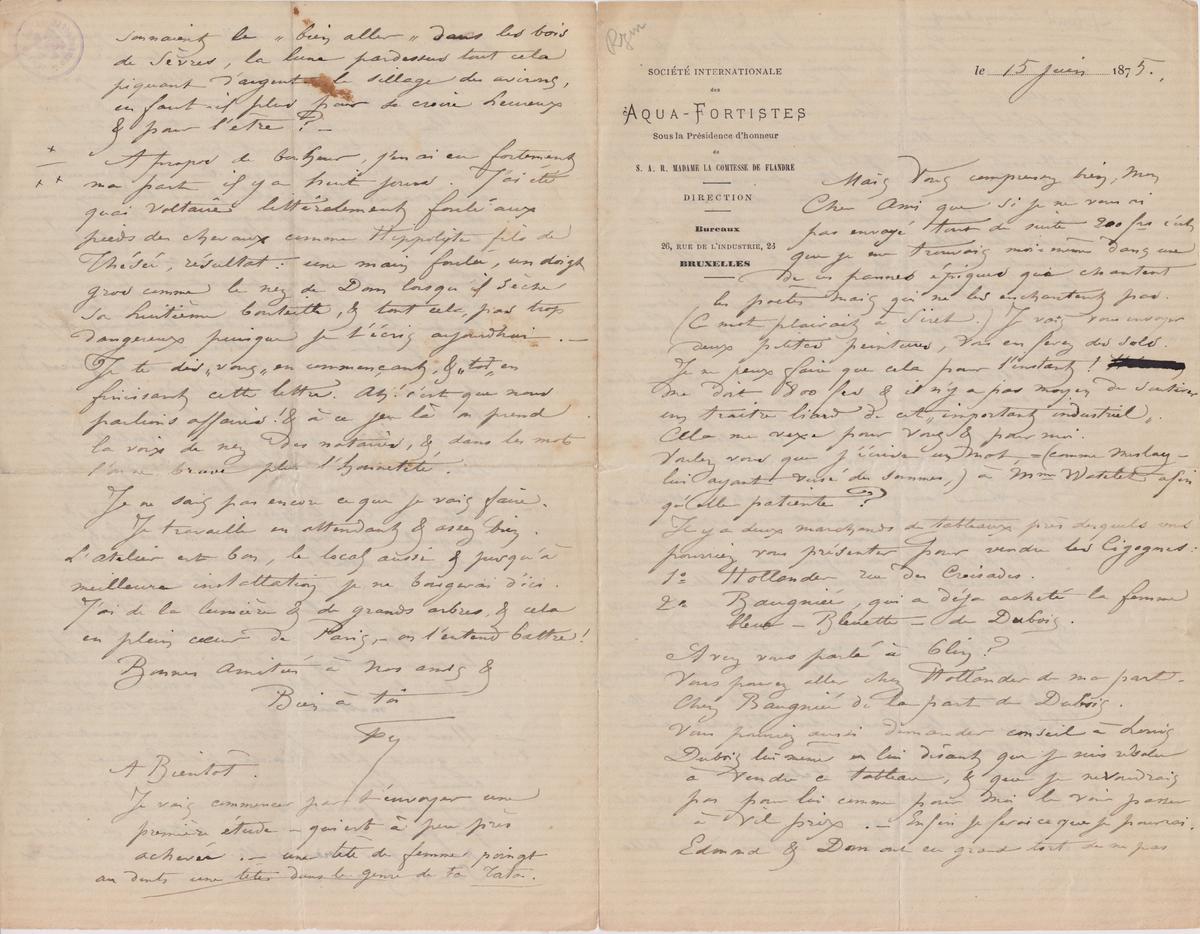 Rops
SOCIÉTÉ INTERNATIONALE
des
AQUA-FORTISTES
Sous la Présidence d'honneur
de
S. A. R. MADAME LA COMTESSE DE FLANDRE
DIRECTION
Bureaux
26, RUE DE L'INDUSTRIE, 24
BRUXELLES
le 15 Juin 1875.
Mais vous comprenez bien, Mon
Cher Ami que si je ne vous ai
pas envoyé tout de suite 200 frs c'est
que je me trouvais moi-même dans une
de ces pannes épiques que chantent
les poètes mais qui ne les enchantent pas.
(Ce mot plairait à Siret.) Je vais vous envoyer
deux petites peintures, vous en ferez des solo.
Je ne peux faire que cela pour l'instant!
me doit 800 frs & il n'y a pas moyen de soutirer
un traître liard de cet „important industriel„.
Cela me vexe pour vous & pour moi.
Voulez vous que j'écrive un mot, = (comme
lui ayant versé des sommes,) à Mme Watelet afin
qu'elle patiente?
Il y a deux marchands de tableaux près desquels vous
pourriez vous présenter pour vendre les Cigognes:
1º Hollander rue des Croisades.
2º Baugniée, qui a déja acheté la femme
bleue – Bluette = de Dubois.
Avez vous parlé à Clin?
Vous pouvez aller chez Hollander de ma part.
Chez Baugnié de la part de Dubois.
Vous pourriez aussi demander conseil à Louis
Dubois lui même en lui disant que je suis résolu
à vendre ce tableau, & que je ne voudrais
pas pour lui comme pour moi le voir passer
à vil prix. — Enfin je ferai ce que je pourrai.
Edmond & Dom ont eu grand tort de ne pas
sonnaient le „ bien aller „ dans les bois
de Sèvres, la lune pardessus tout cela
piquant d'argent le sillage des avirons,
en faut-il plus pour se croire heureux
& pour l'être? –
A propos de bonheur, j'en ai eu fortement
ma part il y a huit jours. J'ai été
quai Voltaire littéralement foulé aux
pieds des chevaux comme Hippolyte fils de
Thésée, résultat: une main foulée, un doigt
gros comme le nez de Dom lorsqu'il sèche
sa huitième bouteille, & tout cela, pas trop
dangereux puisque je t'écris aujourd'hui. —
Je te dis „vous„ en commençant, & „toi„ en
finissant cette lettre. Ah! c'est que nous
parlions affaires! & à ce jeu là on prend
la voix de nez des notaires, & dans les mots
l'on brave plus l'honnêteté.
Je ne sais pas encore ce que je vais faire.
Je travaille en attendant & assez bien.
L'atelier est bon, le local aussi & jusqu'à
meilleure installation je ne bougerai d'ici.
J'ai de la lumière & de grands arbres, & cela
en plein cœur de Paris, – on l'entend battre!
Bonnes amitiés à nos amis &
Bien à toi
Fy
A Bientôt.
Je vais commencer par t'envoyer une
première étude – qui est à peu près
achevée. — une tête de femme poingt
au dents une têtes dans le genre de ta Tata.